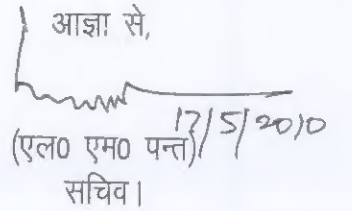 आज्ञा से,
17/5/2010
(एल0 एम0 पन्त)
सचिव।